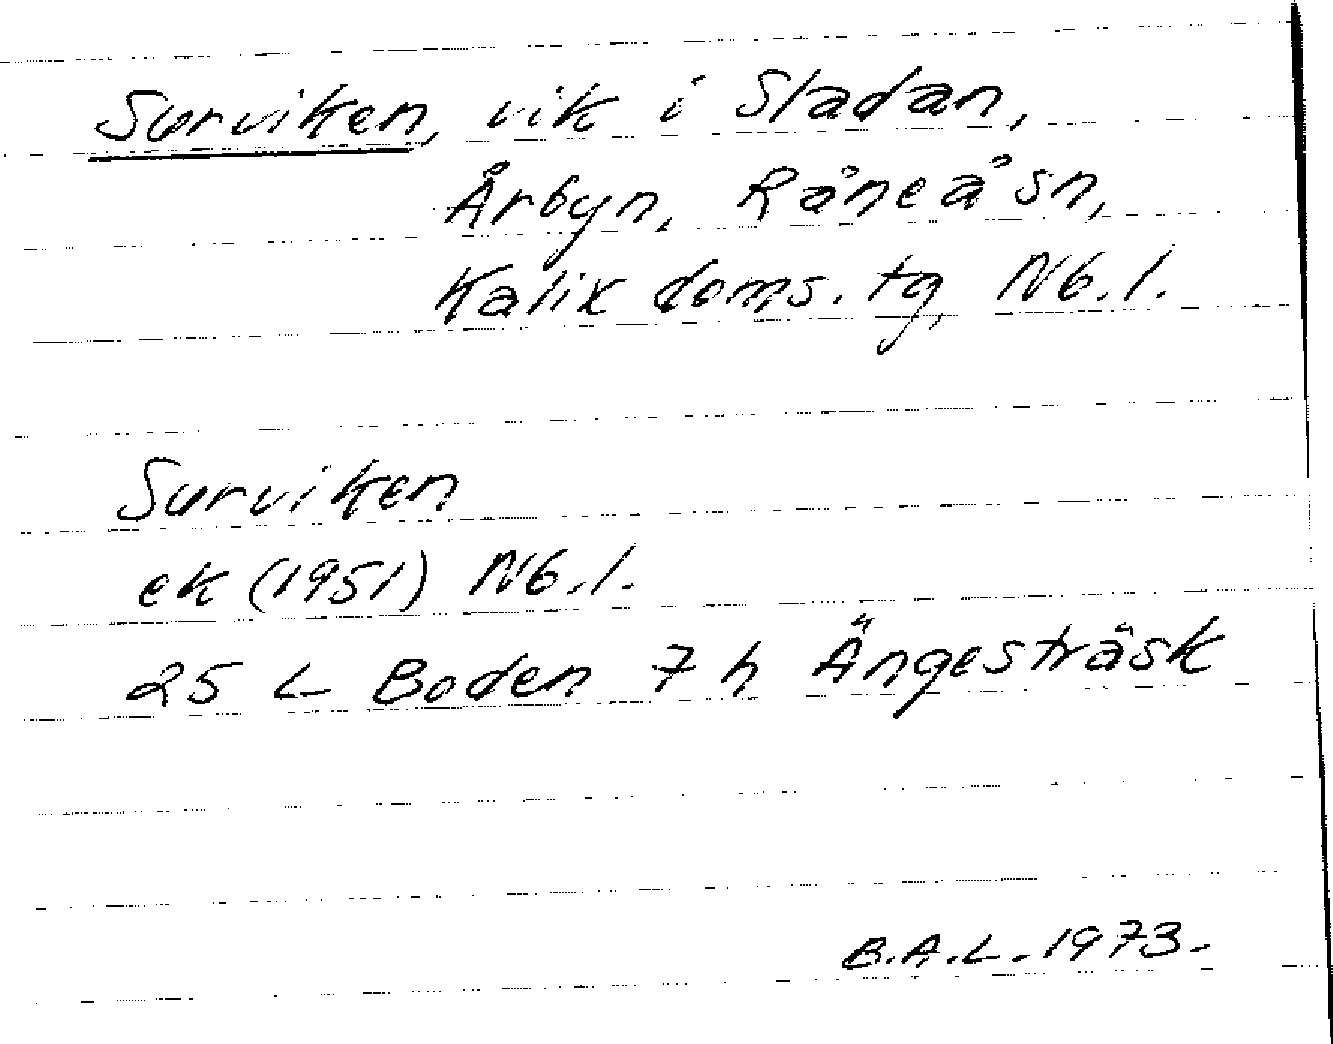 Surviken, vik i Sladan,
Årbyn, Råneå sn,
Kalix doms. tg, Nb. l.
Surviken
ek (1951) Nb. l.
25 L Boden 7 h Ängesträsk
B.A.L. 1973.